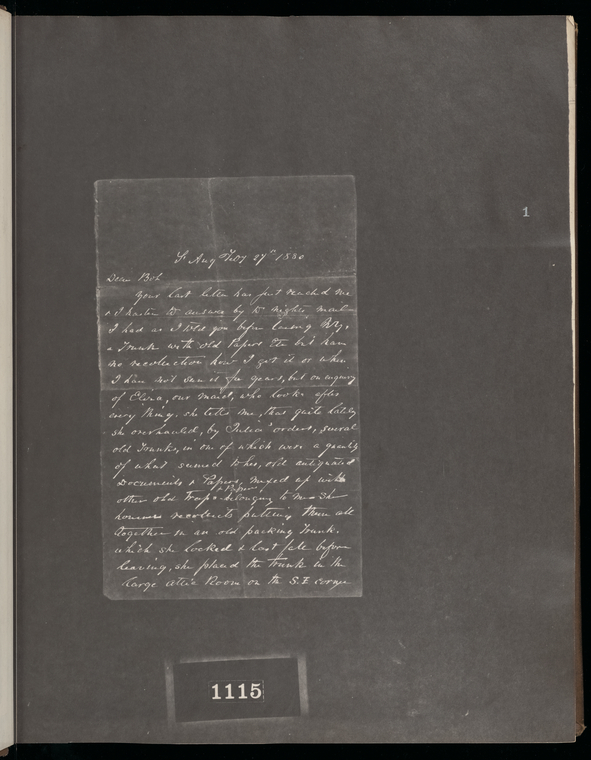 1
St Aug Feby 27th 1880
Dear Bob
Your last letter has just reached me
& I hasten to answer by to nights mail
I had as I told you before leaving N.Y.
a Trunk with old Papers Etc but have
no recollection how I got it or when
I have not seen it for years, but on inquiry
of Eliza, our maid, who looks after
every thing. she tells me, that quite lately
she overhauled, by Julia's orders, several
old Trunks, in one of which were a quantity
of what seemed to her, old antiquated
Documents & Papers, mixed up with
other old Traps & Papers belonging to me She
however recollects putting them all
together in an old packing Trunk.
which she locked & last fall before
leaving, she placed the trunk in the
large attic Room on the S.E corner
1115